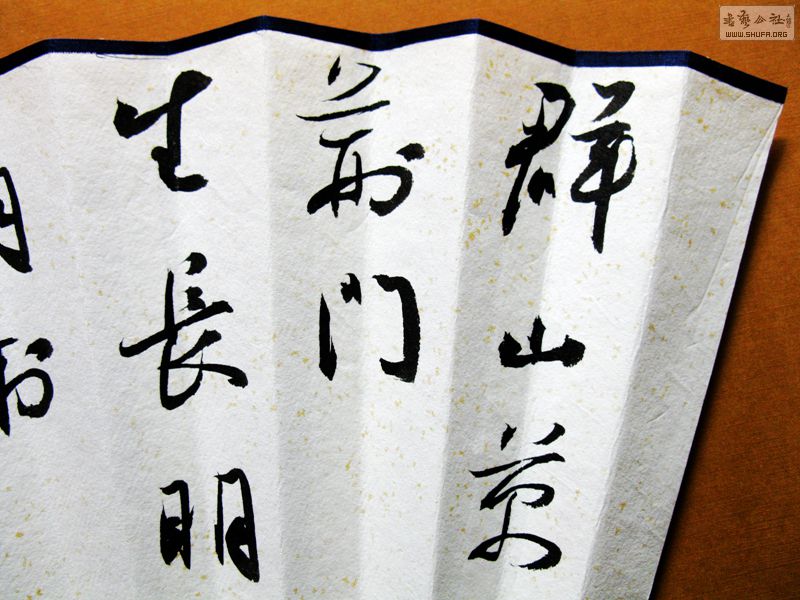 群山萬
荆门
生長明
書藝公社
WWW.SHUFA.ORG